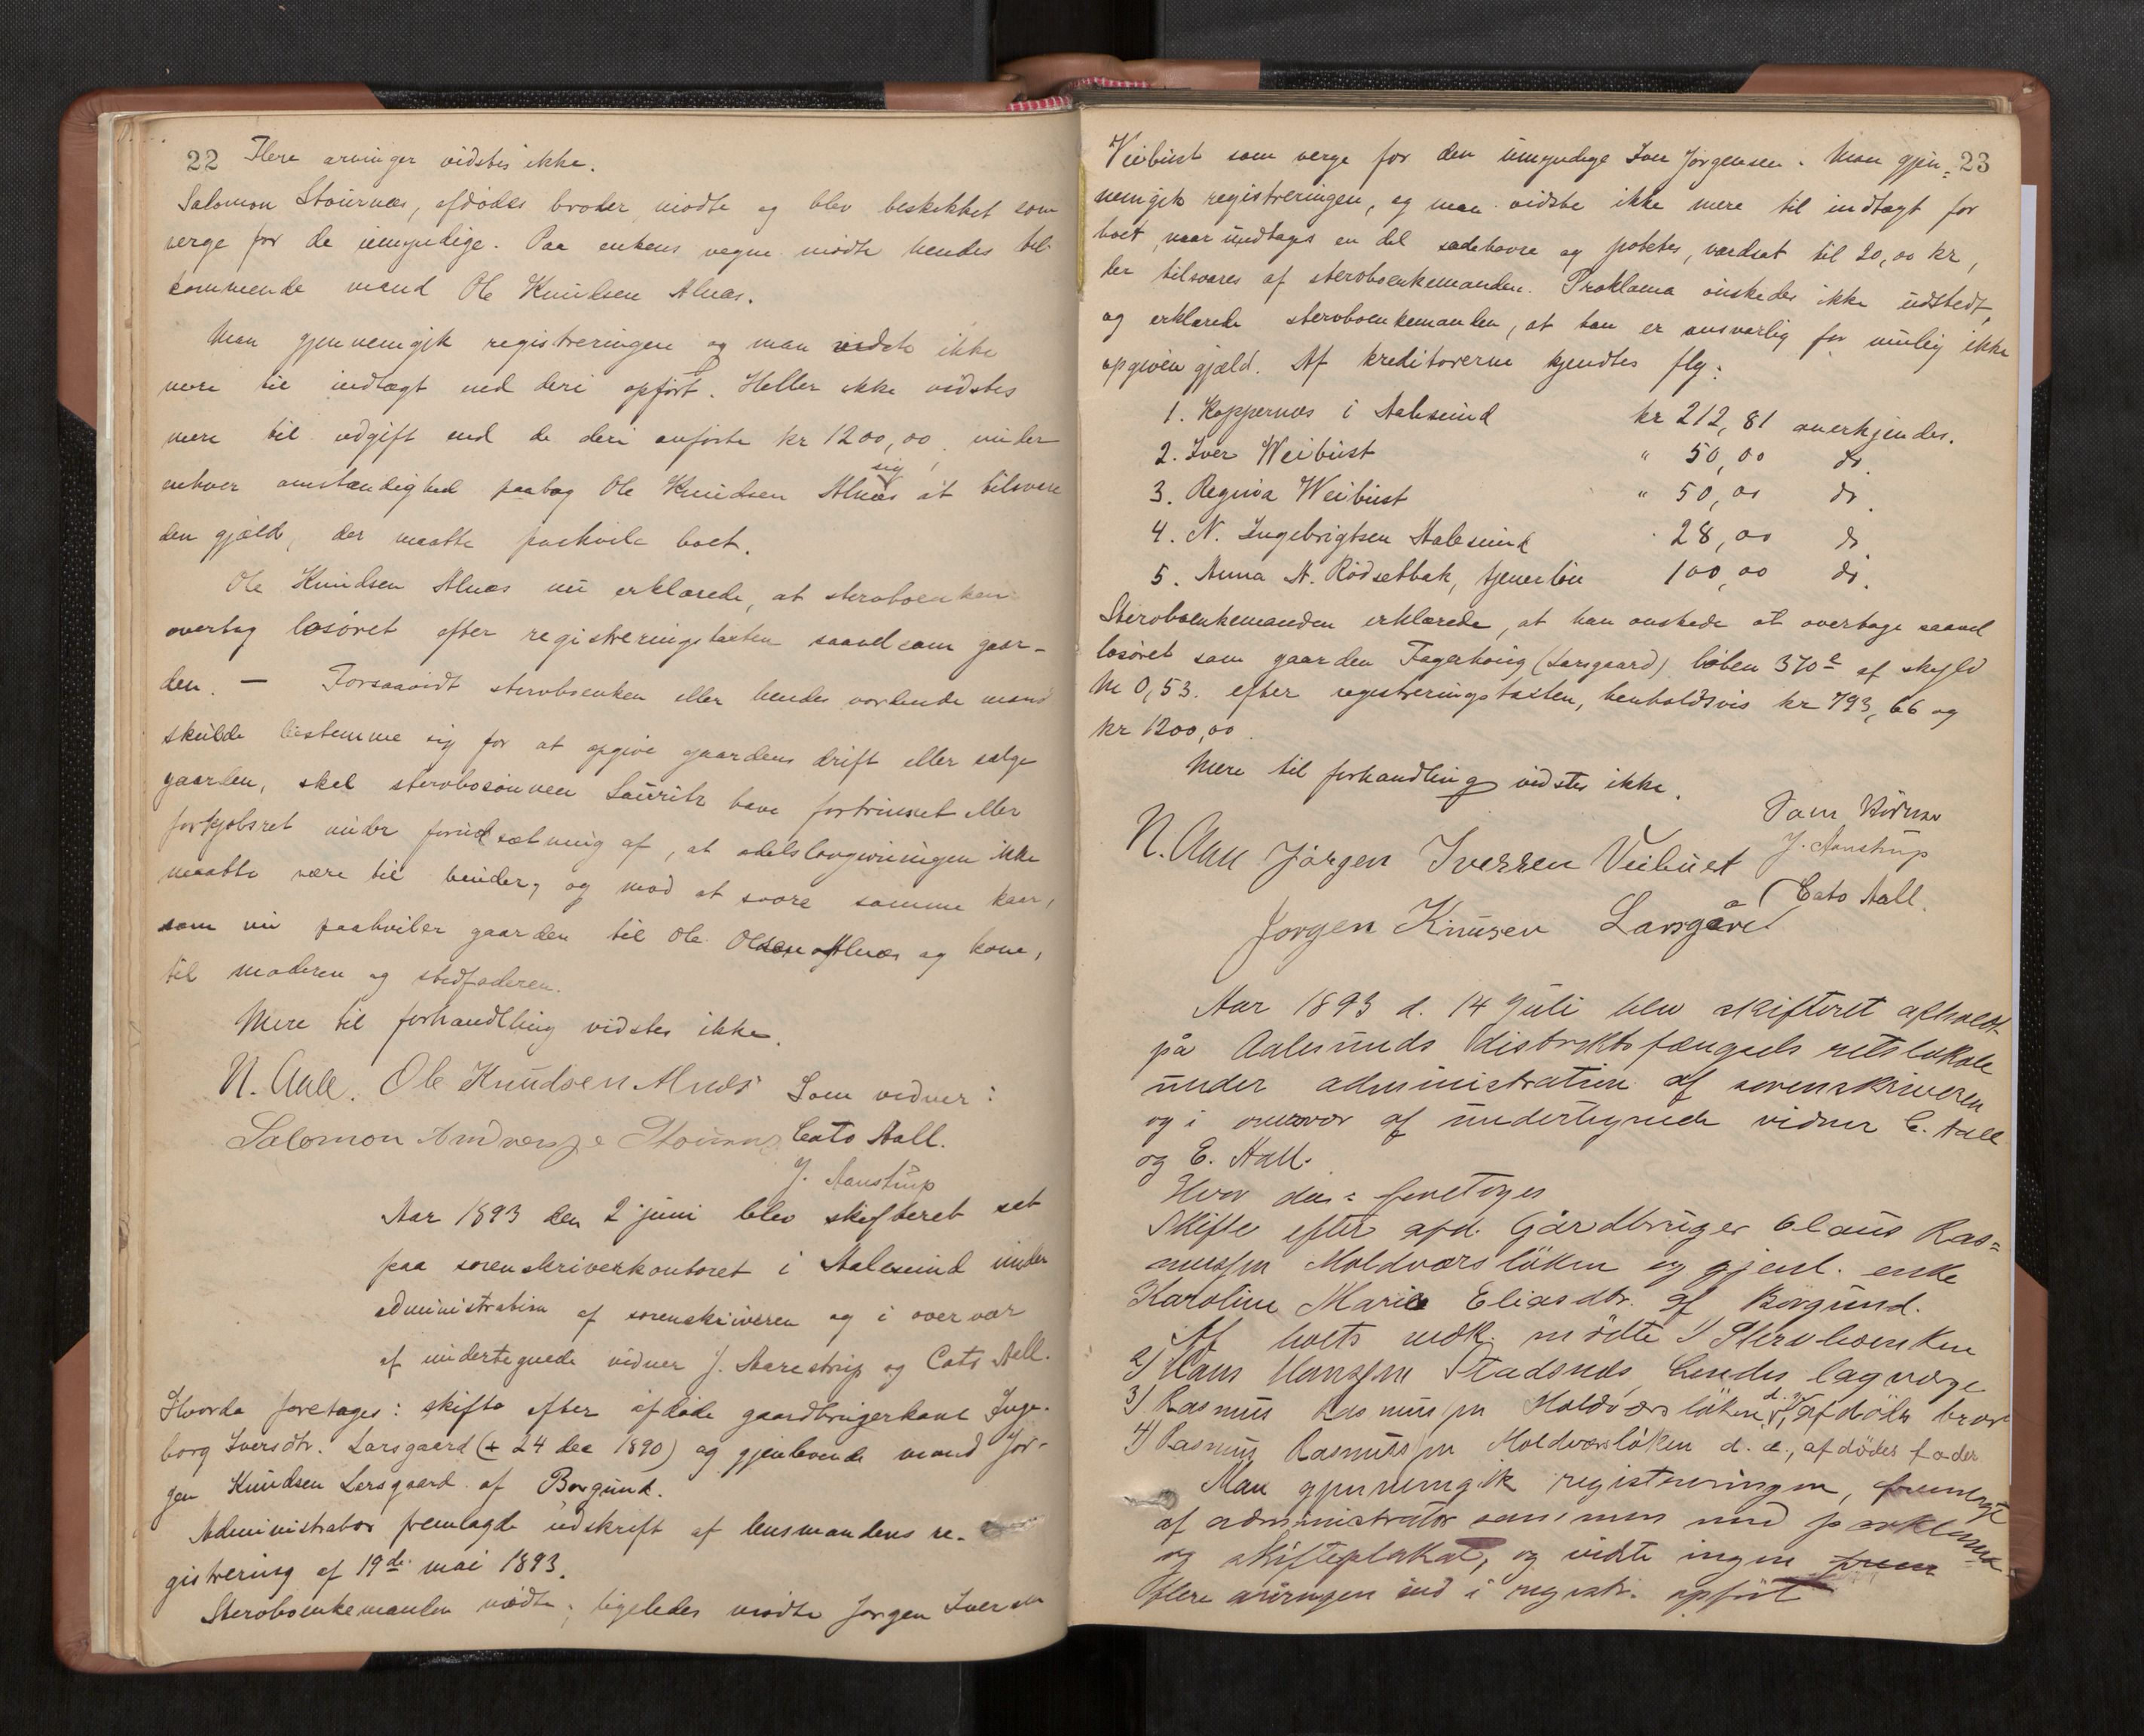 22 Flere arvinger vidstes ikke.
Salomon Stournæs, afdødes broder mødte og blev beskikket som
verge for de umyndige. Paa enkens vegne mødte hendes til
kommende mand Ole Knudsen Alnæs.
Man gjennemgik registreringen og man vidste ikke
mere til indtægt end deri opført. Heller ikke vidstes
mere til udgift end de deri anførte kr 1200,00, under
enhver omstændighed paatog Ole Knudsen Alnæs sig at tilsvare
den gjæld, der maatte paahvile boet.
Ole Knudsen Alnæs nu erklærede, at stervboenken
overtog løsøret efter registreringstaxten saavelsom gaar-
den. — Forsaavidt stervboenken eller hendes vordende mand
skulde bestemme sig for at opgive gaardens drift eller sælge
gaarden, skal stervbosønnen Lauritz have fortrinnet eller
forkjøbsret under forudsætning af, at odelslovgivningen ikke
maatte være til hinder, og mod at svare samme kaar,
som nu paahviler gaarden til Ole Olsen Alnæs og kone,
til moderen og stedfaderen.
Mere til forhandling vidstes ikke.
N. Aall. Ole Knudsen Alnæs Som vidner:
Salomon Andreas Stournæs Cato Aall.
J. Aanstrup
Aar 1893 den 2 juni blev skifteret sat
paa sorenskriverkontoret i Aalesund under
administration af sorenskriveren og i overvær
af undertegnede vidner J. Aarestrup og Cato Aall.
Hvorda foretages: skifte efter afdøde gaardbrugerkone Inge-
borg Iversdtr. Larsgaard (+ 24 dec 1890) og gjenlevende mand Jør-
gen Knudsen Larsgaard af Borgund.
Administrator fremlagde udskrift af lensmandens re-
gistrering af 19de mai 1893.
Stervboenkemanden mødte, ligeledes mødte Jørgen Iversen
Veibust som verge for den umyndige Iver Jørgensen. Man gjen- 23
nemgik registreringen, og man vidste ikke mere til indtægt for
boet, naar undtages en del sædehavre og poteter, værdsat til 20,00 kr,
der tilsvares af stervboenkemanden. Proklama ønskedes ikke udstedt,
og erklærede stervboenkemanden, at han er ansvarlig for mulig ikke
opgiven gjæld. Af kreditorerne kjendtes flg:
1. Koppernæs i Aalesund kr 212,81 anerkjendes.
2. Iver Weibust " 50,00 do.
3. Regina Weibust " 50,00 do.
4. N. Ingebrigtsen Aalesund " 28,00 do
5. Anna A. Rødsetbak, tjenerløn 100,00 do.
Stervboenkemanden erklærede, at han ønskede at overtage saavel
løsøret som gaarden Fagerhaug (Larsgaard) løben 370e af skyld
M 0,53. efter registreringstaxten, henholdsvis kr 793,66 og
kr 1200,00.
Mere til forhandling vidstes ikke.
Som vidner
N. Aall Jørgen Iversen Veibust J. Aanstrup
Cato Aall.
Jorgen Knusen Larsgård
Aar 1893 d. 14 Juli blev skifteret afholdt
på Aalesunds distriktsfængsels retslokale
under administration af sorenskriveren
og i overvær af undertegnede vidner C. Aall
og E. Aall.
Hvor da: foretoges
Skifte efter afd. Gårdbruger Claus Ras=
mussen Moldværsløken og gjenl. enke
Karoline Marie Eliasdtr. af Borgund.
Af boets vedk. mødte 1) Stervboenken
2) Hans Hanssen Stadsnæs hendes lagværge
3) Rasmus Rasmussen Moldværsløken d. y., afdødes bror
4) Rasmus Rasmussen Moldværsløken d. e., afdødes fader
Man gjennemgik registreringen, fremlagt
af administrator sammen med proklama
og skifteplakat, og vidste ingen
flere arvinger end i registr. opført